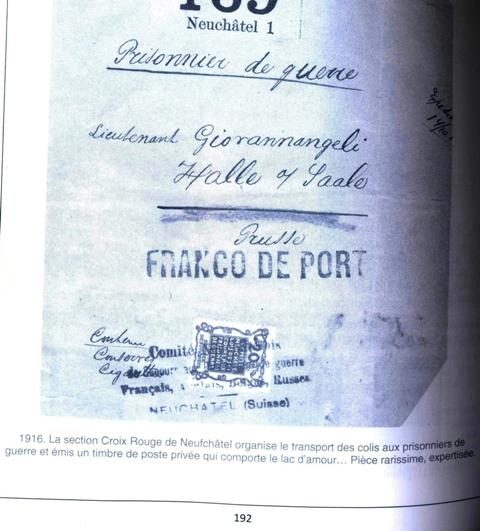 Neuchâtel 1
Prisonnier de guerre
Lieutenant Giovannangeli
Halle / Saale
Prusse
FRANCO DE PORT
Contenu
Conserves
Comité
guerre
Français, Russes
NEUCHATEL (Suisse)
1916. La section Croix Rouge de Neufchâtel organise le transport des colis aux prisonniers de
guerre et émis un timbre de poste privée qui comporte le lac d'amour... Pièce rarissime, expertisée.
192